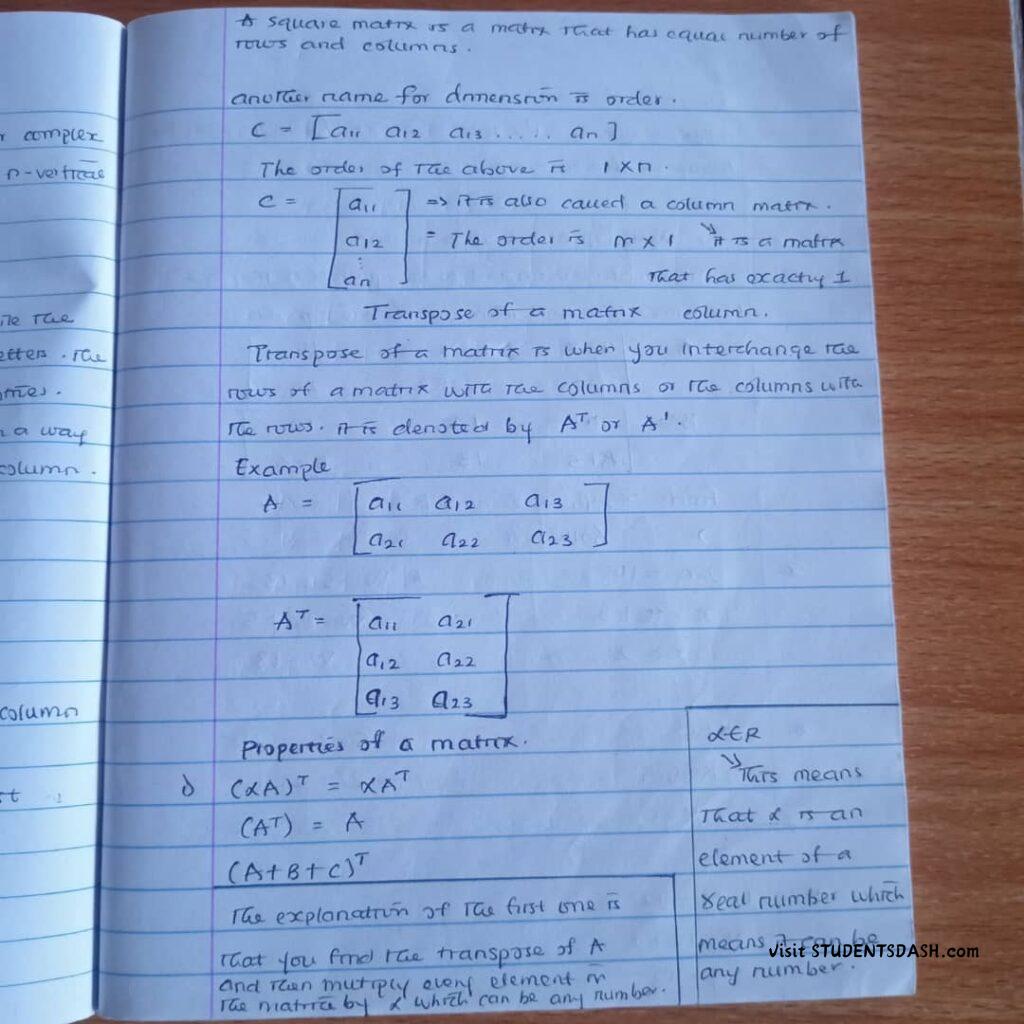 A square matrix is a matrix that has equal number of
rows and columns.
another name for dimension is order.
C = [a11 a12 a13 ..... an]
The order of the above is 1 x n.
C = [a11 => it is also called a column matrix.
a12 = The order is m x 1 ↘ it is a matrix
⋮
an] that has exactly 1
Transpose of a matrix column.
Transpose of a matrix is when you interchange the
rows of a matrix with the columns or the columns with
the rows. it is denoted by Aᵀ or A'.
Example
A = [a11 a12 a13
a21 a22 a23]
Aᵀ = [a11 a21
a12 a22
a13 a23]
Properties of a matrix.
i) (αA)ᵀ = αAᵀ
(Aᵀ) = A
(A+B+C)ᵀ
The explanation of the first one is
that you find the transpose of A
and then multiply every element in
the matrix by α which can be any number.
α∈R
↘ This means
that α is an
element of a
real number which
means it can be
any number.
visit STUDENTSDASH.com
r complex
n-vertical
the
etters. The
a way
column.
column